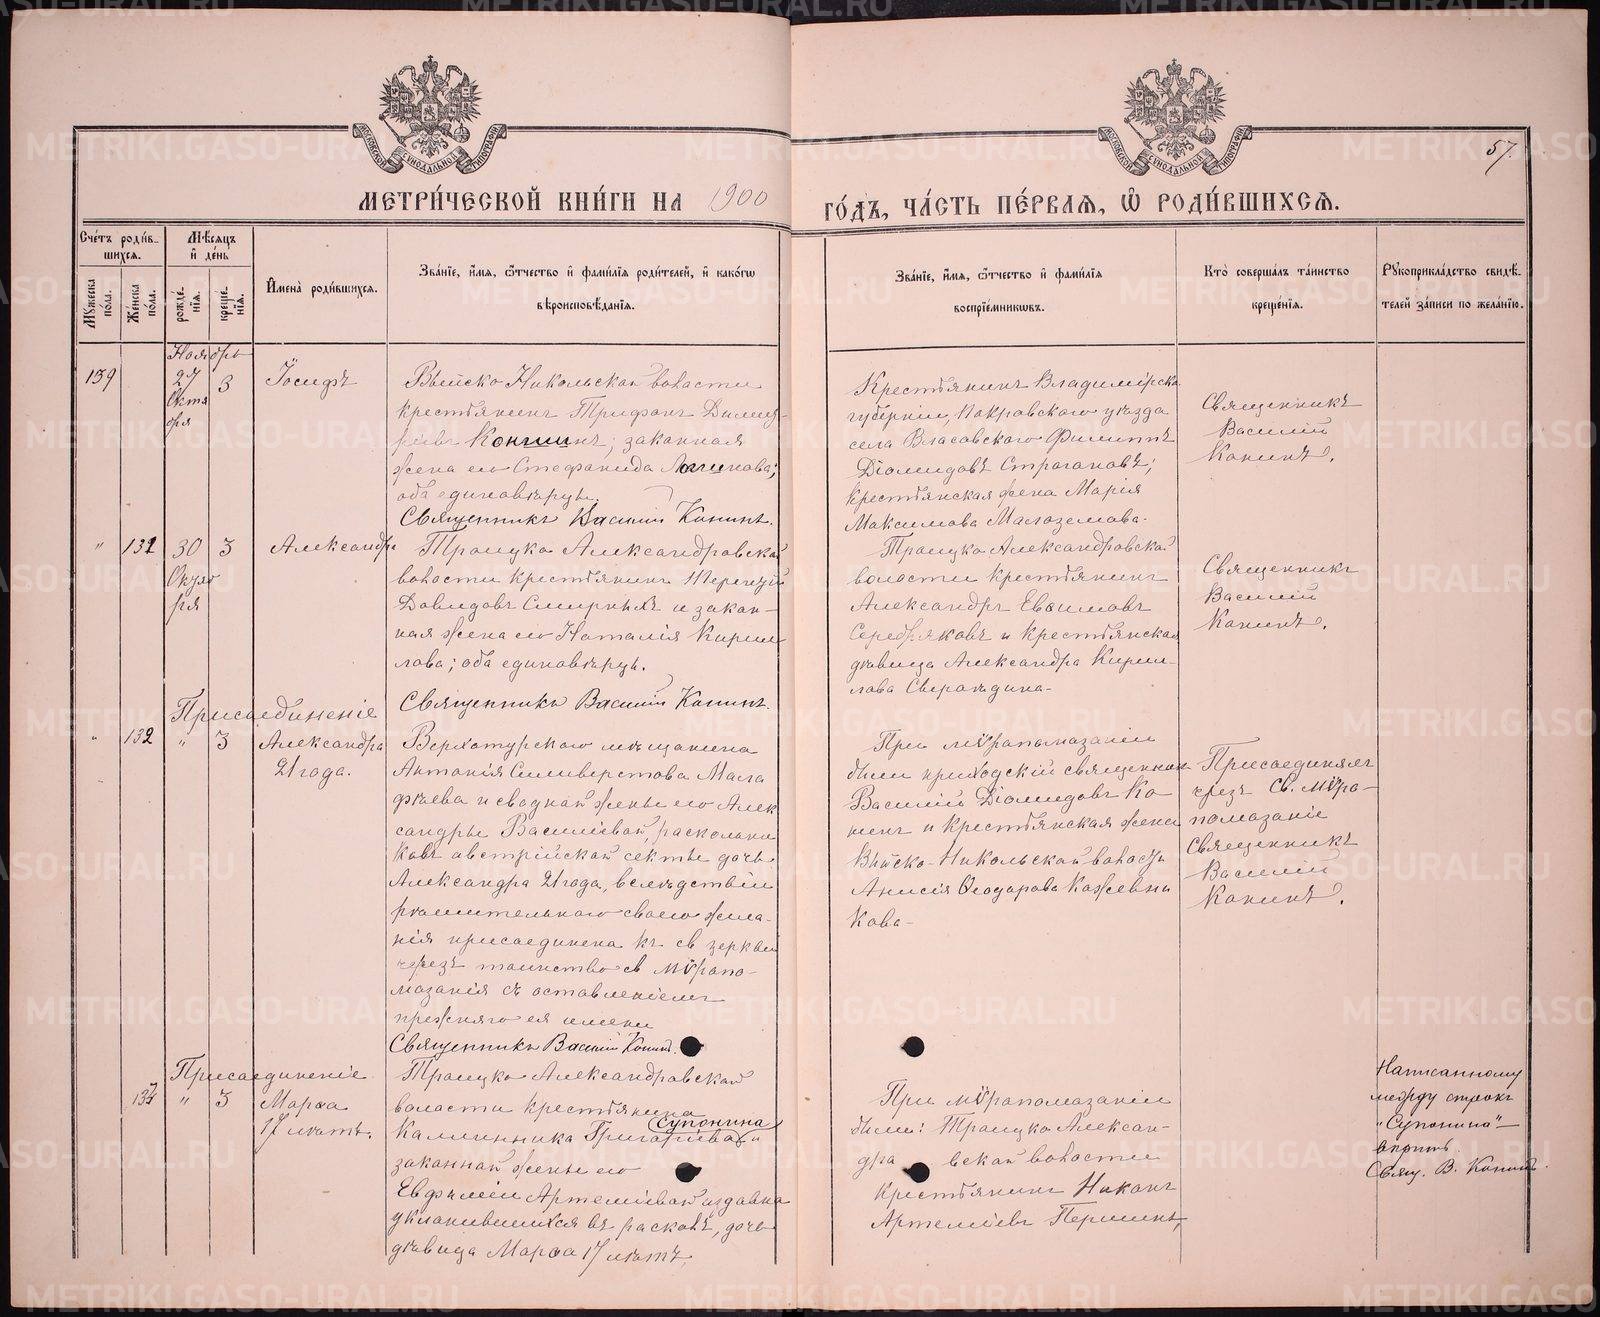 57.
МЕТРИ́ЧЕСКОЙ КНИ́ГИ НА 1900
ГО́ДЪ, ЧА́СТЬ ПЕ́РВАѦ, Ѡ҆ РОДИ́ВШИХСѦ.
Сче́тъ роди́в-
шихся.
Мѣ́сяцъ
и҆ де́нь
Мꙋ́жеска по́ла.
Же́нска по́ла.
рожде́нїѧ.
креще́нїѧ.
И҆мена̀ роди́вшихся.
Зва́нїе, и҆́мѧ, ѻ҆́тчество и҆ фами́лїѧ роди́телей, и҆ како́гѡ
вѣроисповѣ́данїѧ.
Зва́нїе, и҆́мѧ, ѻ҆́тчество и҆ фами́лїѧ
воспрїе́мникѡвъ.
Кто̀ соверша́лъ та́инство
креще́нїѧ.
Рꙋкоприкла́дство свидѣ́-
телей за́писи по жела́нїю.
Ноябрь
139
27
Октя
бря
3
Іосифъ
Выйско Никольской волости
крестьянинъ Трифонъ Димит-
ріевъ Коншинъ; законная
жена его Стефанида Логинова;
оба единовѣрцы.
Священникъ Василій Конинъ.
Крестьянинъ Владимірско
губерніи, Покровского уѣзда
села Власовского Филиппъ
Діомидовъ Строгановъ;
крестьянская жена Марія
Максимова Малоземова.
Священникъ
Василій
Конинъ.
"
131
30
Октя
бря
3
Александра
Троицко Александровской
волости крестьянинъ Терентій
Давидовъ Смирныхъ и закон-
ная жена его Наталія Кирил
лова; оба единовѣрцы.
Священникъ Василій Конинъ.
Троицко Александровской
волости крестьянинъ
Александръ Евѳимовъ
Серебряковъ и крестьянская
дѣвица Александра Кирил-
лова
Священникъ
Василій
Конинъ.
Присоединеніе
"
132
"
3
Александра
21 года.
Верхотурского мѣщанина
Антонія Силиверстова Мала
фѣева и сводной жены его Алек
сандры Василіевой, расколни
ковъ австрійской секты дочь
Александра 21 года, вслѣдствіи
рѣшительного своего жела-
нія присоединена къ св церкви
чрезъ таинство св мѵропо-
мазанія съ оставленіемъ
прежняго ея имени
Священникъ Василій Конинъ.
При мѵропомазаніи
были приходскій священникъ
Василій Діомидовъ Ко
нинъ и крестьянская жена
Выйско-Никольской волости
Анисія Ѳеодорова Кожевни
кова-
Присоединялъ
чрезъ Св. мѵро-
помазаніе
Священникъ
Василій
Конинъ.
Присоединеніе
133
"
3
Марѳа
17 лѣтъ.
Троицко Александровской
волости крестьянина
Супонина
Каллинника Григоріева и
законной жены его
Евфиміи Артеміевой издавна
уклонившихся въ расколъ, дочь
дѣвица Марѳа 17 лѣтъ,
При мѵропомазаніи
были: Троицко Алексан-
дро вской волости
Крестьянинъ Никонъ
Артеміевъ Першинъ,
Написанному
между строкъ
"Супонина"
вѣрить.
Свящ. В. Конинъ.